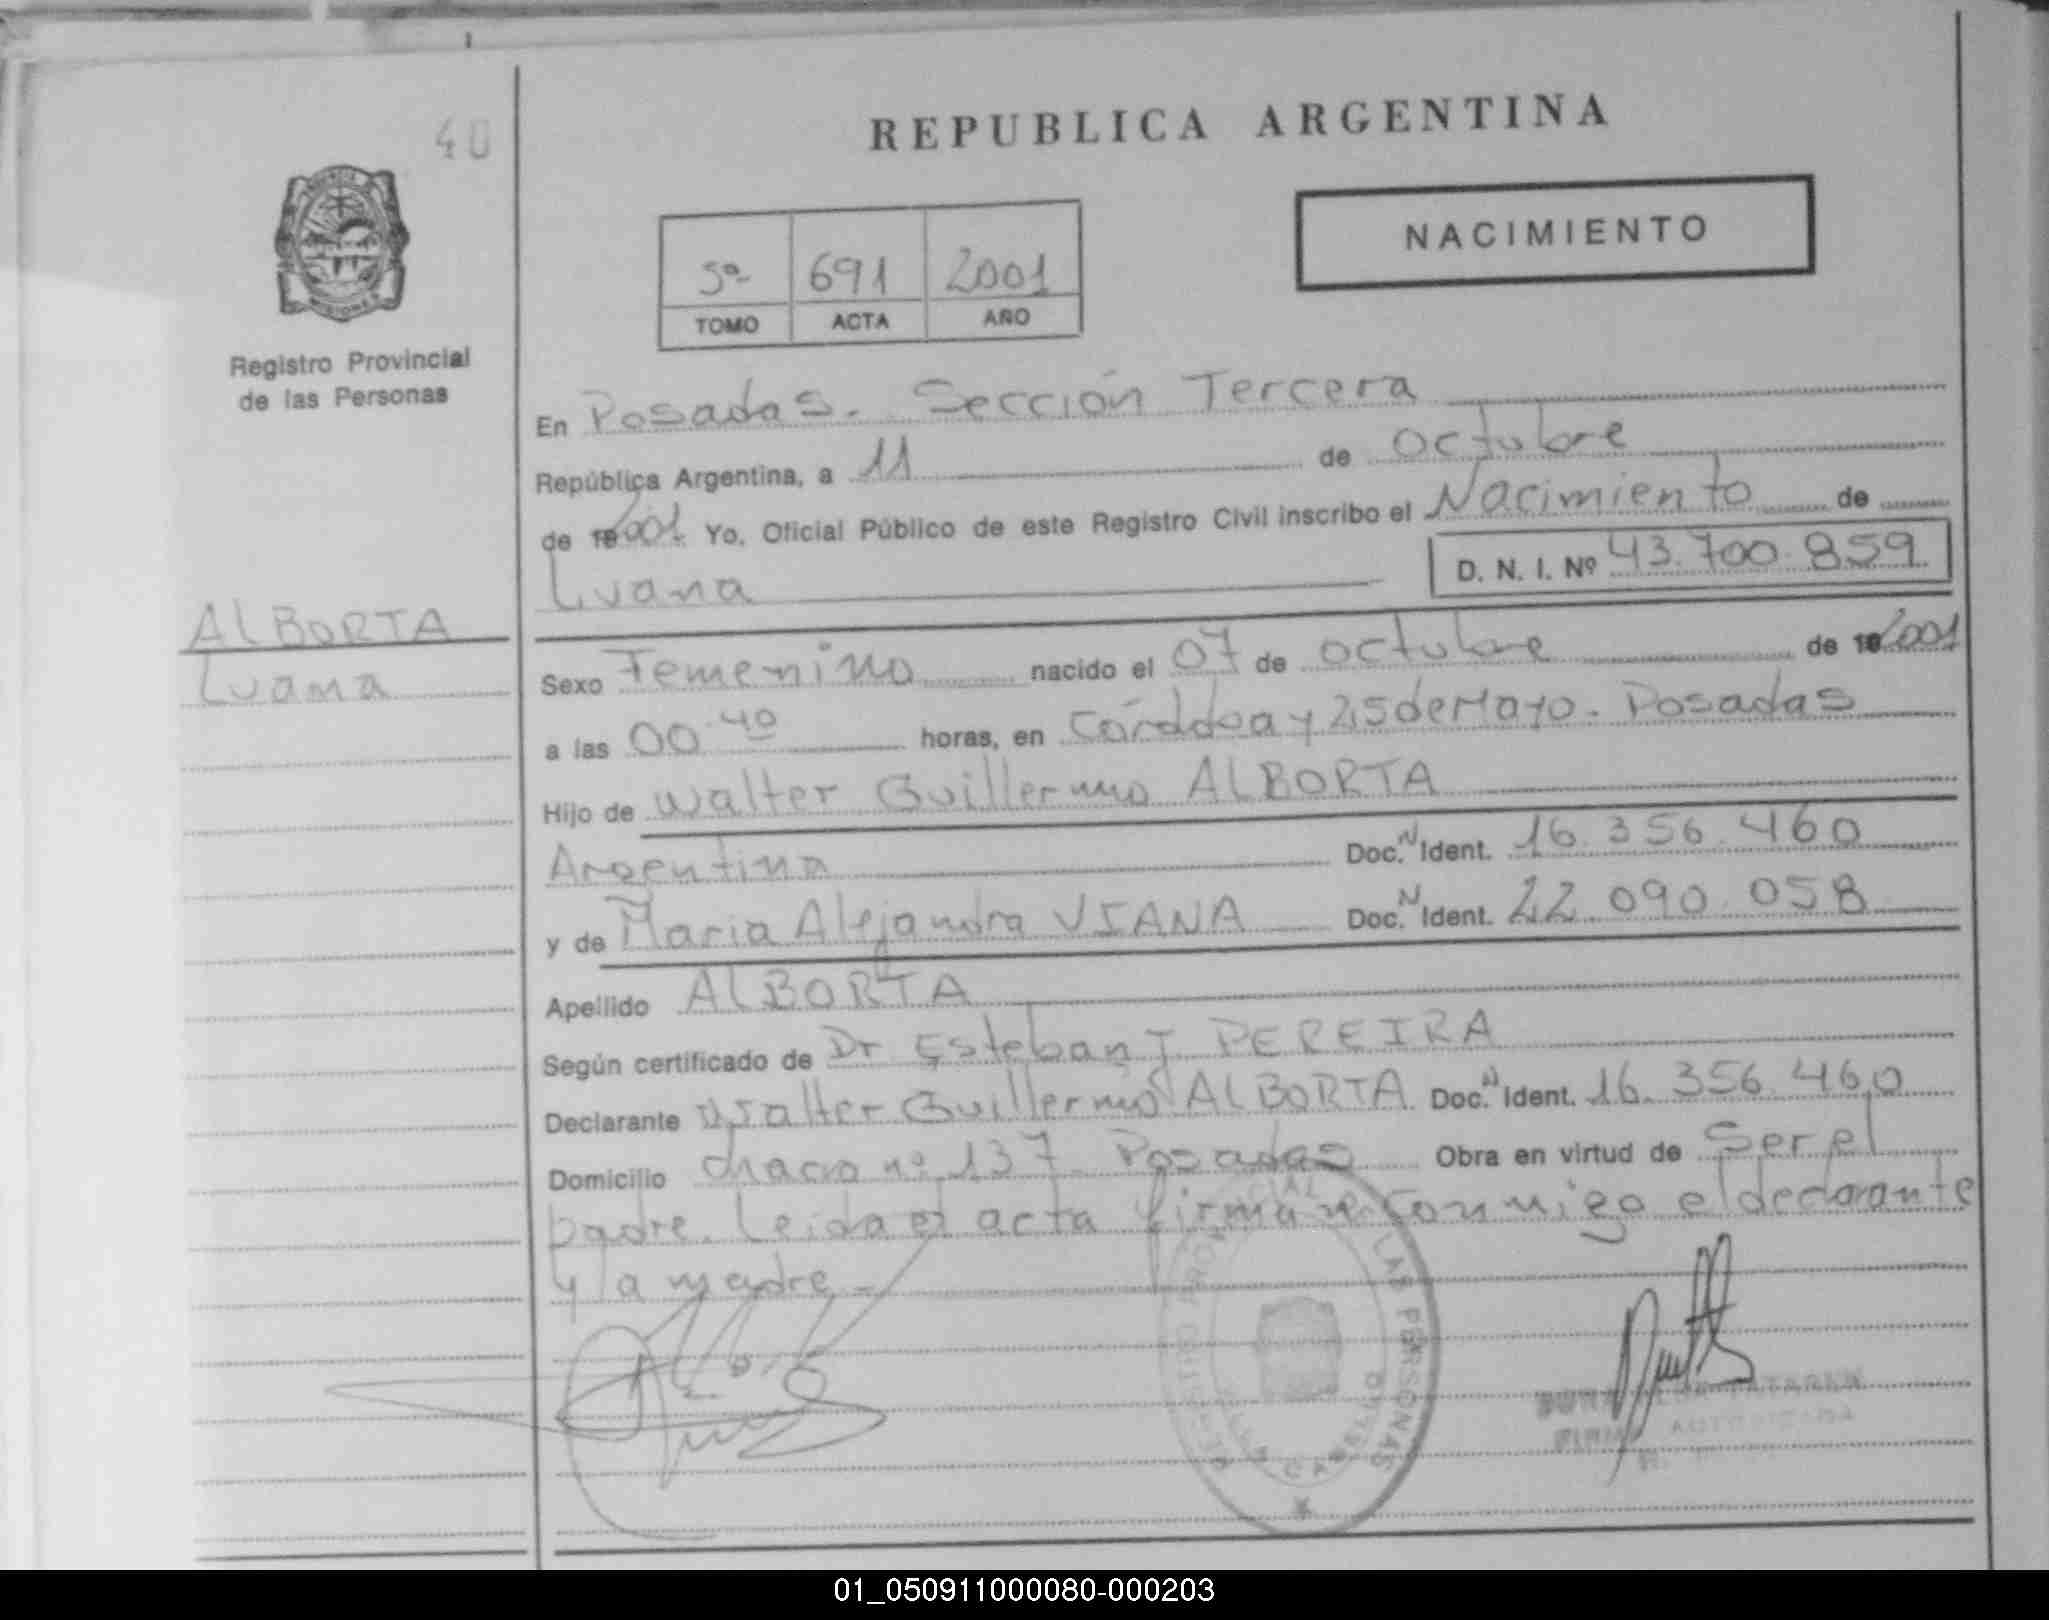 40
REPUBLICA ARGENTINA
NACIMIENTO
5º 691 2001
TOMO ACTA AÑO
Registro Provincial
de las Personas
En Posadas. Sección Tercera
República Argentina, a 11 de octubre
de 2001 Yo, Oficial Público de este Registro Civil inscribo el Nacimiento de
Luana D. N. I. Nº 43.700.859
ALBORTA
Luana
Sexo Femenino nacido el 07 de octubre de 2001
a las 00.40 horas, en Córdoba y 25 de Mayo. Posadas
Hijo de Walter Guillermo ALBORTA
Argentina Doc. N Ident. 16.356.460
y de Maria Alejandra VIANA Doc. N Ident. 22.090.058
Apellido ALBORTA
Según certificado de Dr Esteban J. PEREIRA
Declarante Walter Guillermo ALBORTA Doc. N Ident. 16.356.460
Domicilio chacra nº 137 Posadas Obra en virtud de Ser el
padre. Leida el acta firman conmigo el declarante
y la madre.-
LAS PERSONAS
FIRMA AUTORIZADA
01_050911000080-000203